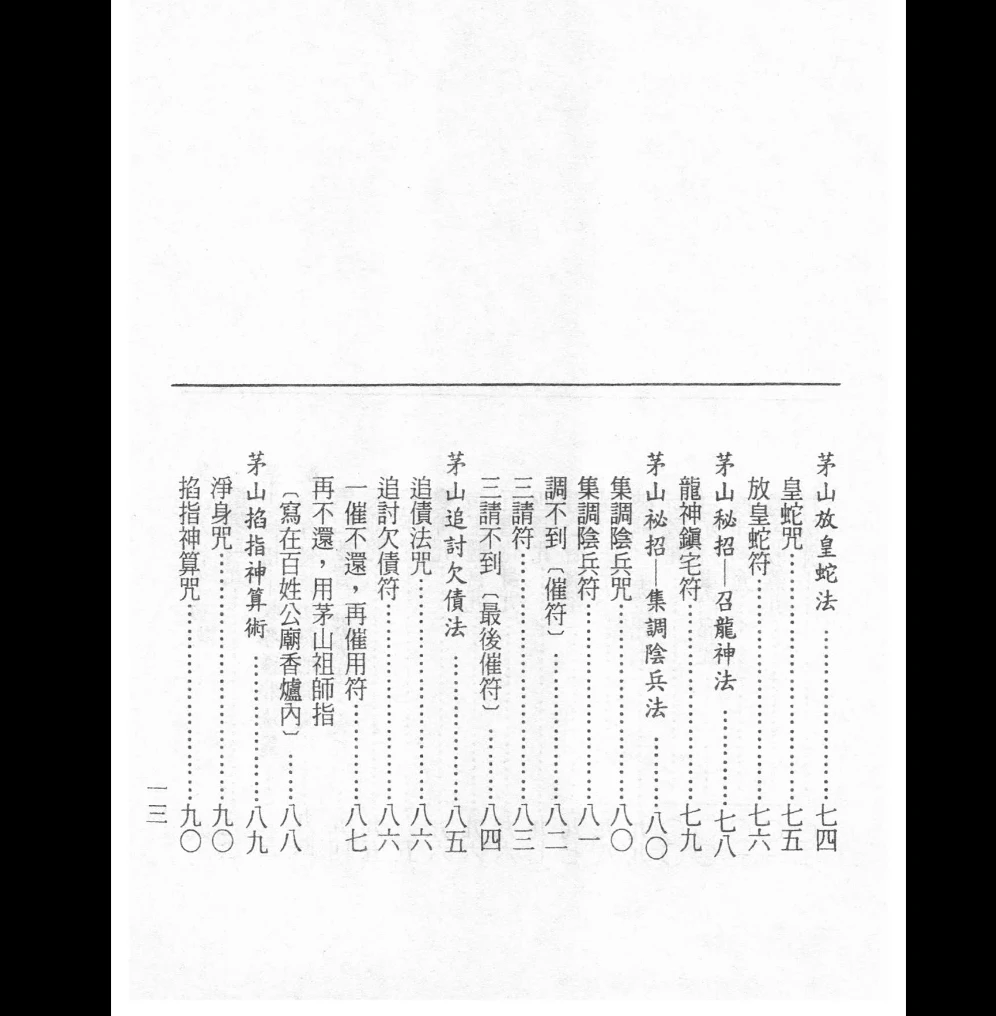 茅山放皇蛇法……七四
皇蛇咒……七五
放皇蛇符……七六
茅山秘招—召龍神法……七八
龍神鎭宅符……七九
茅山祕招—集調陰兵法……八〇
集調陰兵咒……八〇
集調陰兵符……八一
調不到〔催符〕……八二
三請符……八三
三請不到〔最後催符〕……八四
茅山追討欠債法……八五
追債法咒……八六
追討欠債符……八六
一催不還，再催用符……八七
再不還，用茅山祖師指
〔寫在百姓公廟香爐內〕……八八
茅山掐指神算術……八九
淨身咒……九〇
掐指神算咒……九〇
一三